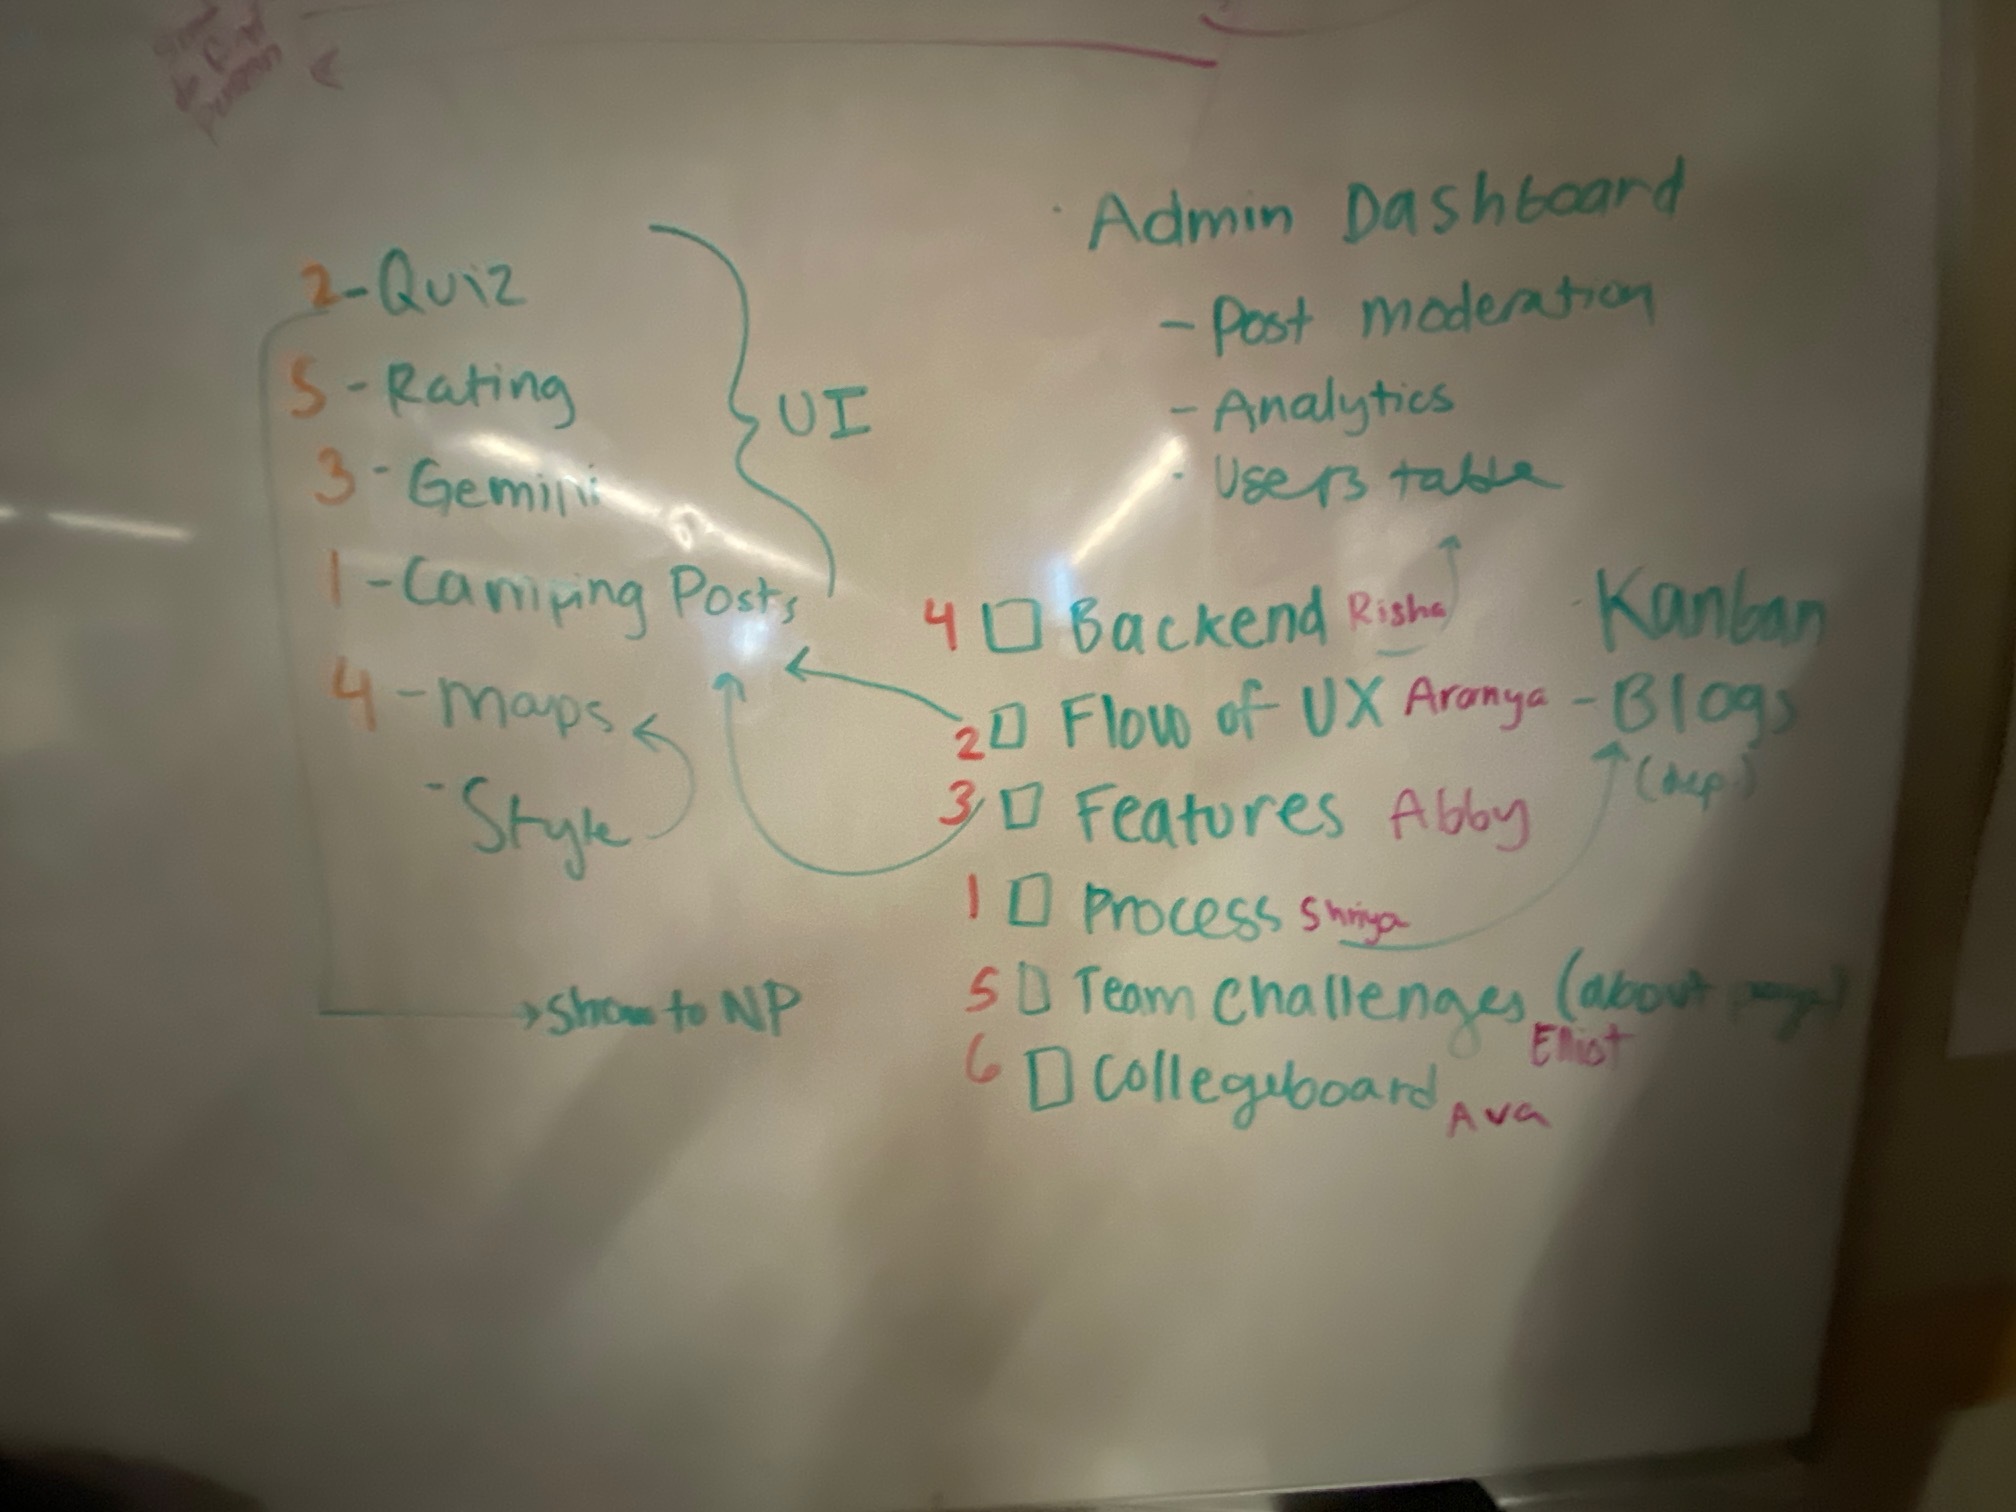 2-Quiz
5-Rating
3-Gemini
1-Camping Posts
4-Maps
-Style
UI
→Show to NP
· Admin Dashboard
- Post moderation
- Analytics
- Users table
4 □ Backend Risha
2 □ Flow of UX Aranya
3 □ Features Abby
1 □ Process Shriya
5 □ Team Challenges (about page)
Elliot
6 □ Collegeboard Ava
· Kanban
- Blogs
(dep.)